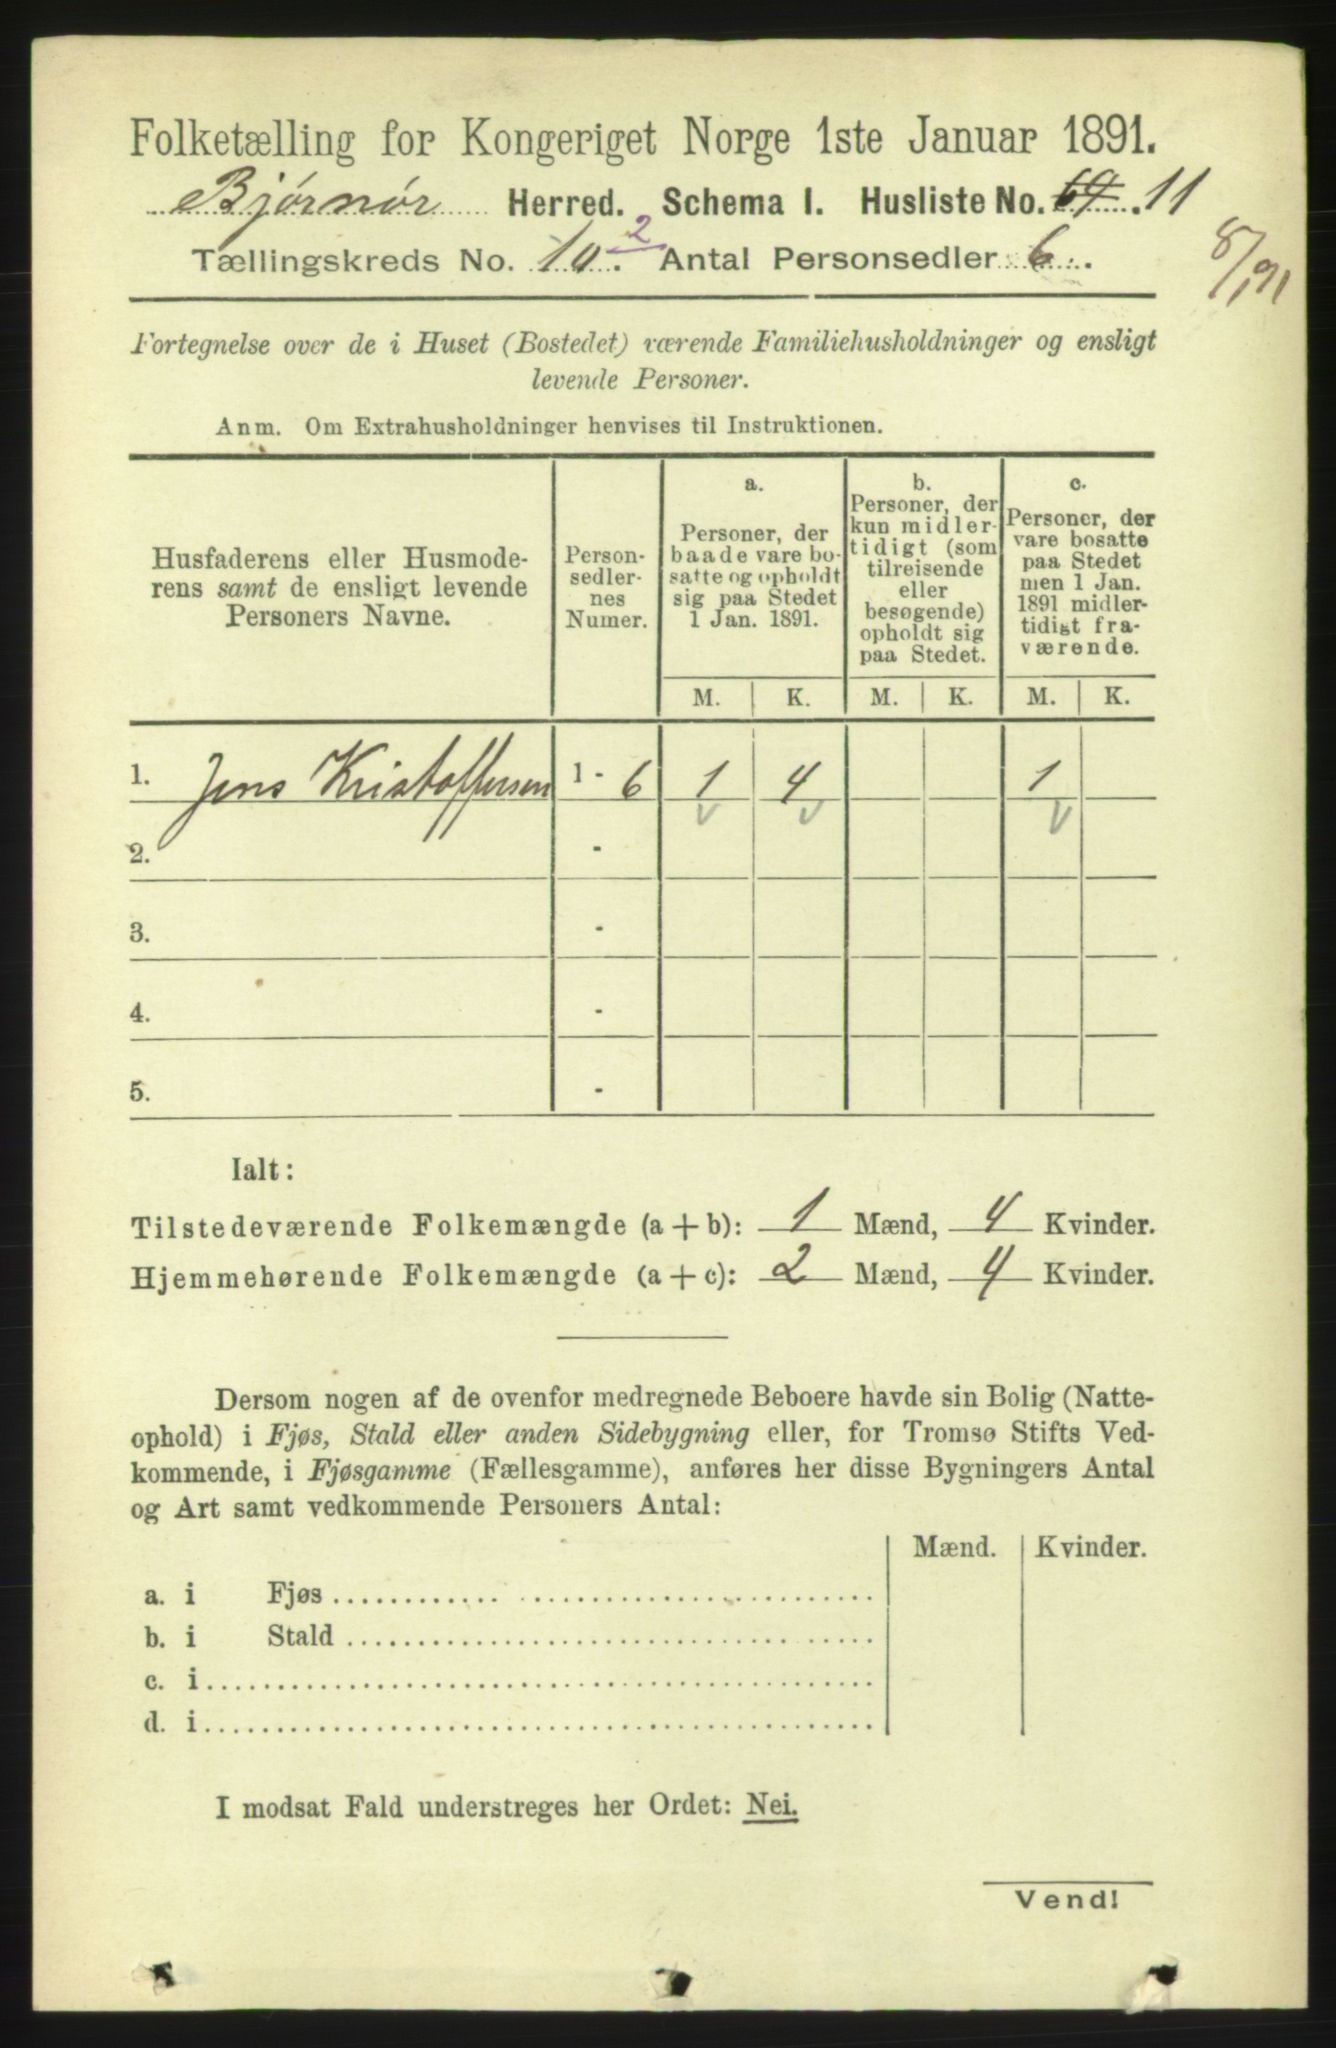 Folketælling for Kongeriget Norge 1ste Januar 1891.
Bjørnør Herred. Schema I. Husliste No. 69. 11
Tællingskreds No. 10. 2 Antal Personsedler 6.
8/1 91
Fortegnelse over de i Huset (Bostedet) værende Familiehusholdninger og ensligt
levende Personer.
Anm. Om Extrahusholdninger henvises til Instruktionen.
Husfaderens eller Husmode-
rens samt de ensligt levende
Personers Navne.
Person-
sedler-
nes
Numer.
a.
Personer, der
baade vare bo-
satte og opholdt
sig paa Stedet
1 Jan. 1891.
b.
Personer, der
kun midler-
tidigt (som
tilreisende
eller
besøgende)
opholdt sig
paa Stedet.
c.
Personer, der
vare bosatte
paa Stedet
men 1 Jan.
1891 midler-
tidigt fra-
værende.
M. K. M. K. M. K.
1. Jens Kristoffersen 1 - 6 1 4 1
v v v
2. -
3. -
4. -
5. -
Ialt:
Tilstedeværende Folkemængde (a + b): 1 Mænd, 4 Kvinder.
Hjemmehørende Folkemængde (a + c): 2 Mænd, 4 Kvinder.
Dersom nogen af de ovenfor medregnede Beboere havde sin Bolig (Natte-
ophold) i Fjøs, Stald eller anden Sidebygning eller, for Tromsø Stifts Ved-
kommende, i Fjøsgamme (Fællesgamme), anføres her disse Bygningers Antal
og Art samt vedkommende Personers Antal:
Mænd. Kvinder.
a. i Fjøs
b. i Stald
c. i
d. i
I modsat Fald understreges her Ordet: Nei.
Vend!